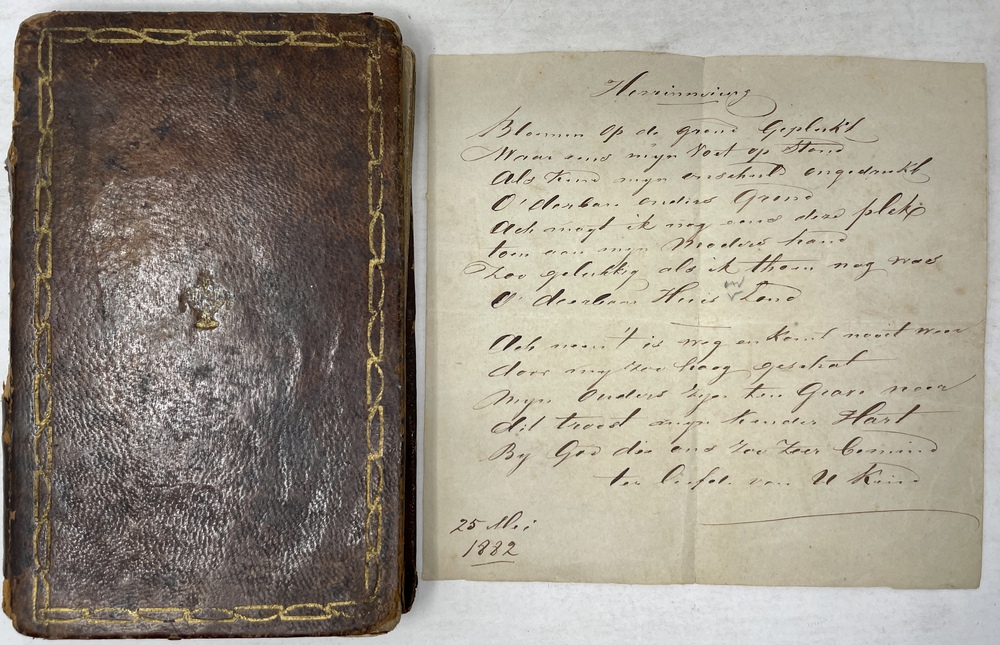 Herrinnering
Bloemen op de grond Geplukt
Waar eens mijn Voet op Stond
Als kind mijn onschuld ongedrukt
O' dierbare ouders Grond
Ach mogt ik nog eens deze plek
toen aan mijn Moeders hand
Zoo gelukkig als ik thoen nog was
O' dierbaar Huis Land
Ach neen 't is weg en komt nooit weer
door my zoo hoog geschat
Myn Ouders zyn ten Grave neer
dit troost myn kinder Hart
By God die ons zoo zeer bemind
ter liefde van U Kind
25 Mei
1882